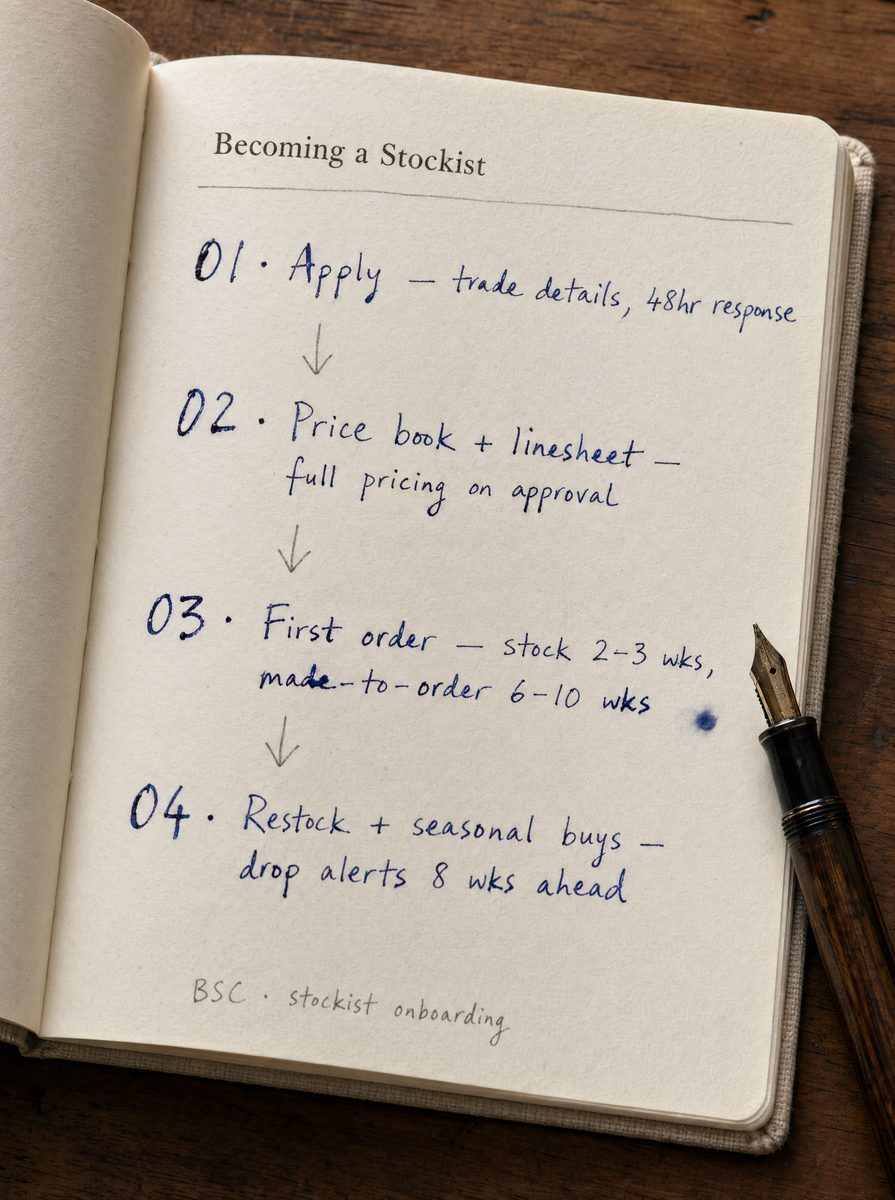 Becoming a Stockist
01 · Apply — trade details, 48hr response
02 · Price book + linesheet —
full pricing on approval
03 · First order — stock 2–3 wks,
made-to-order 6–10 wks
04 · Restock + seasonal buys —
drop alerts 8 wks ahead
BSC · stockist onboarding